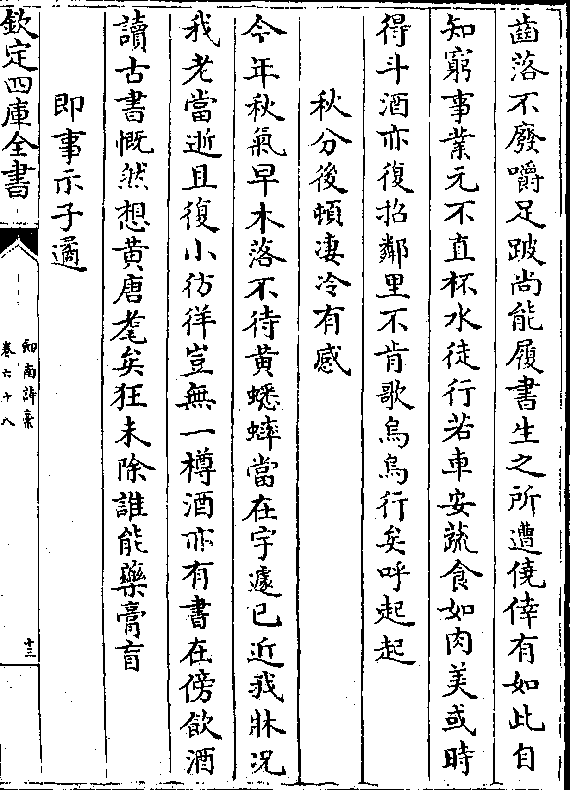 齒落不廢嚼足跛尚能履書生之所遭僥倖有如此自
知窮事業元不直杯水徒行若車安蔬食如肉美或時
得斗酒亦復招鄰里不肯歌烏烏行矣呼起起
秋分後頓凄冷有感
今年秋氣早木落不待黄蟋蟀當在宇遽已近我牀况
我老當逝且復小彷徉豈無一樽酒亦有書在傍飲酒
讀古書慨然想黄唐耄矣狂未除誰能藥膏肓
即事示子遹
欽定四庫全書
劍南詩槀
卷六十八
十三